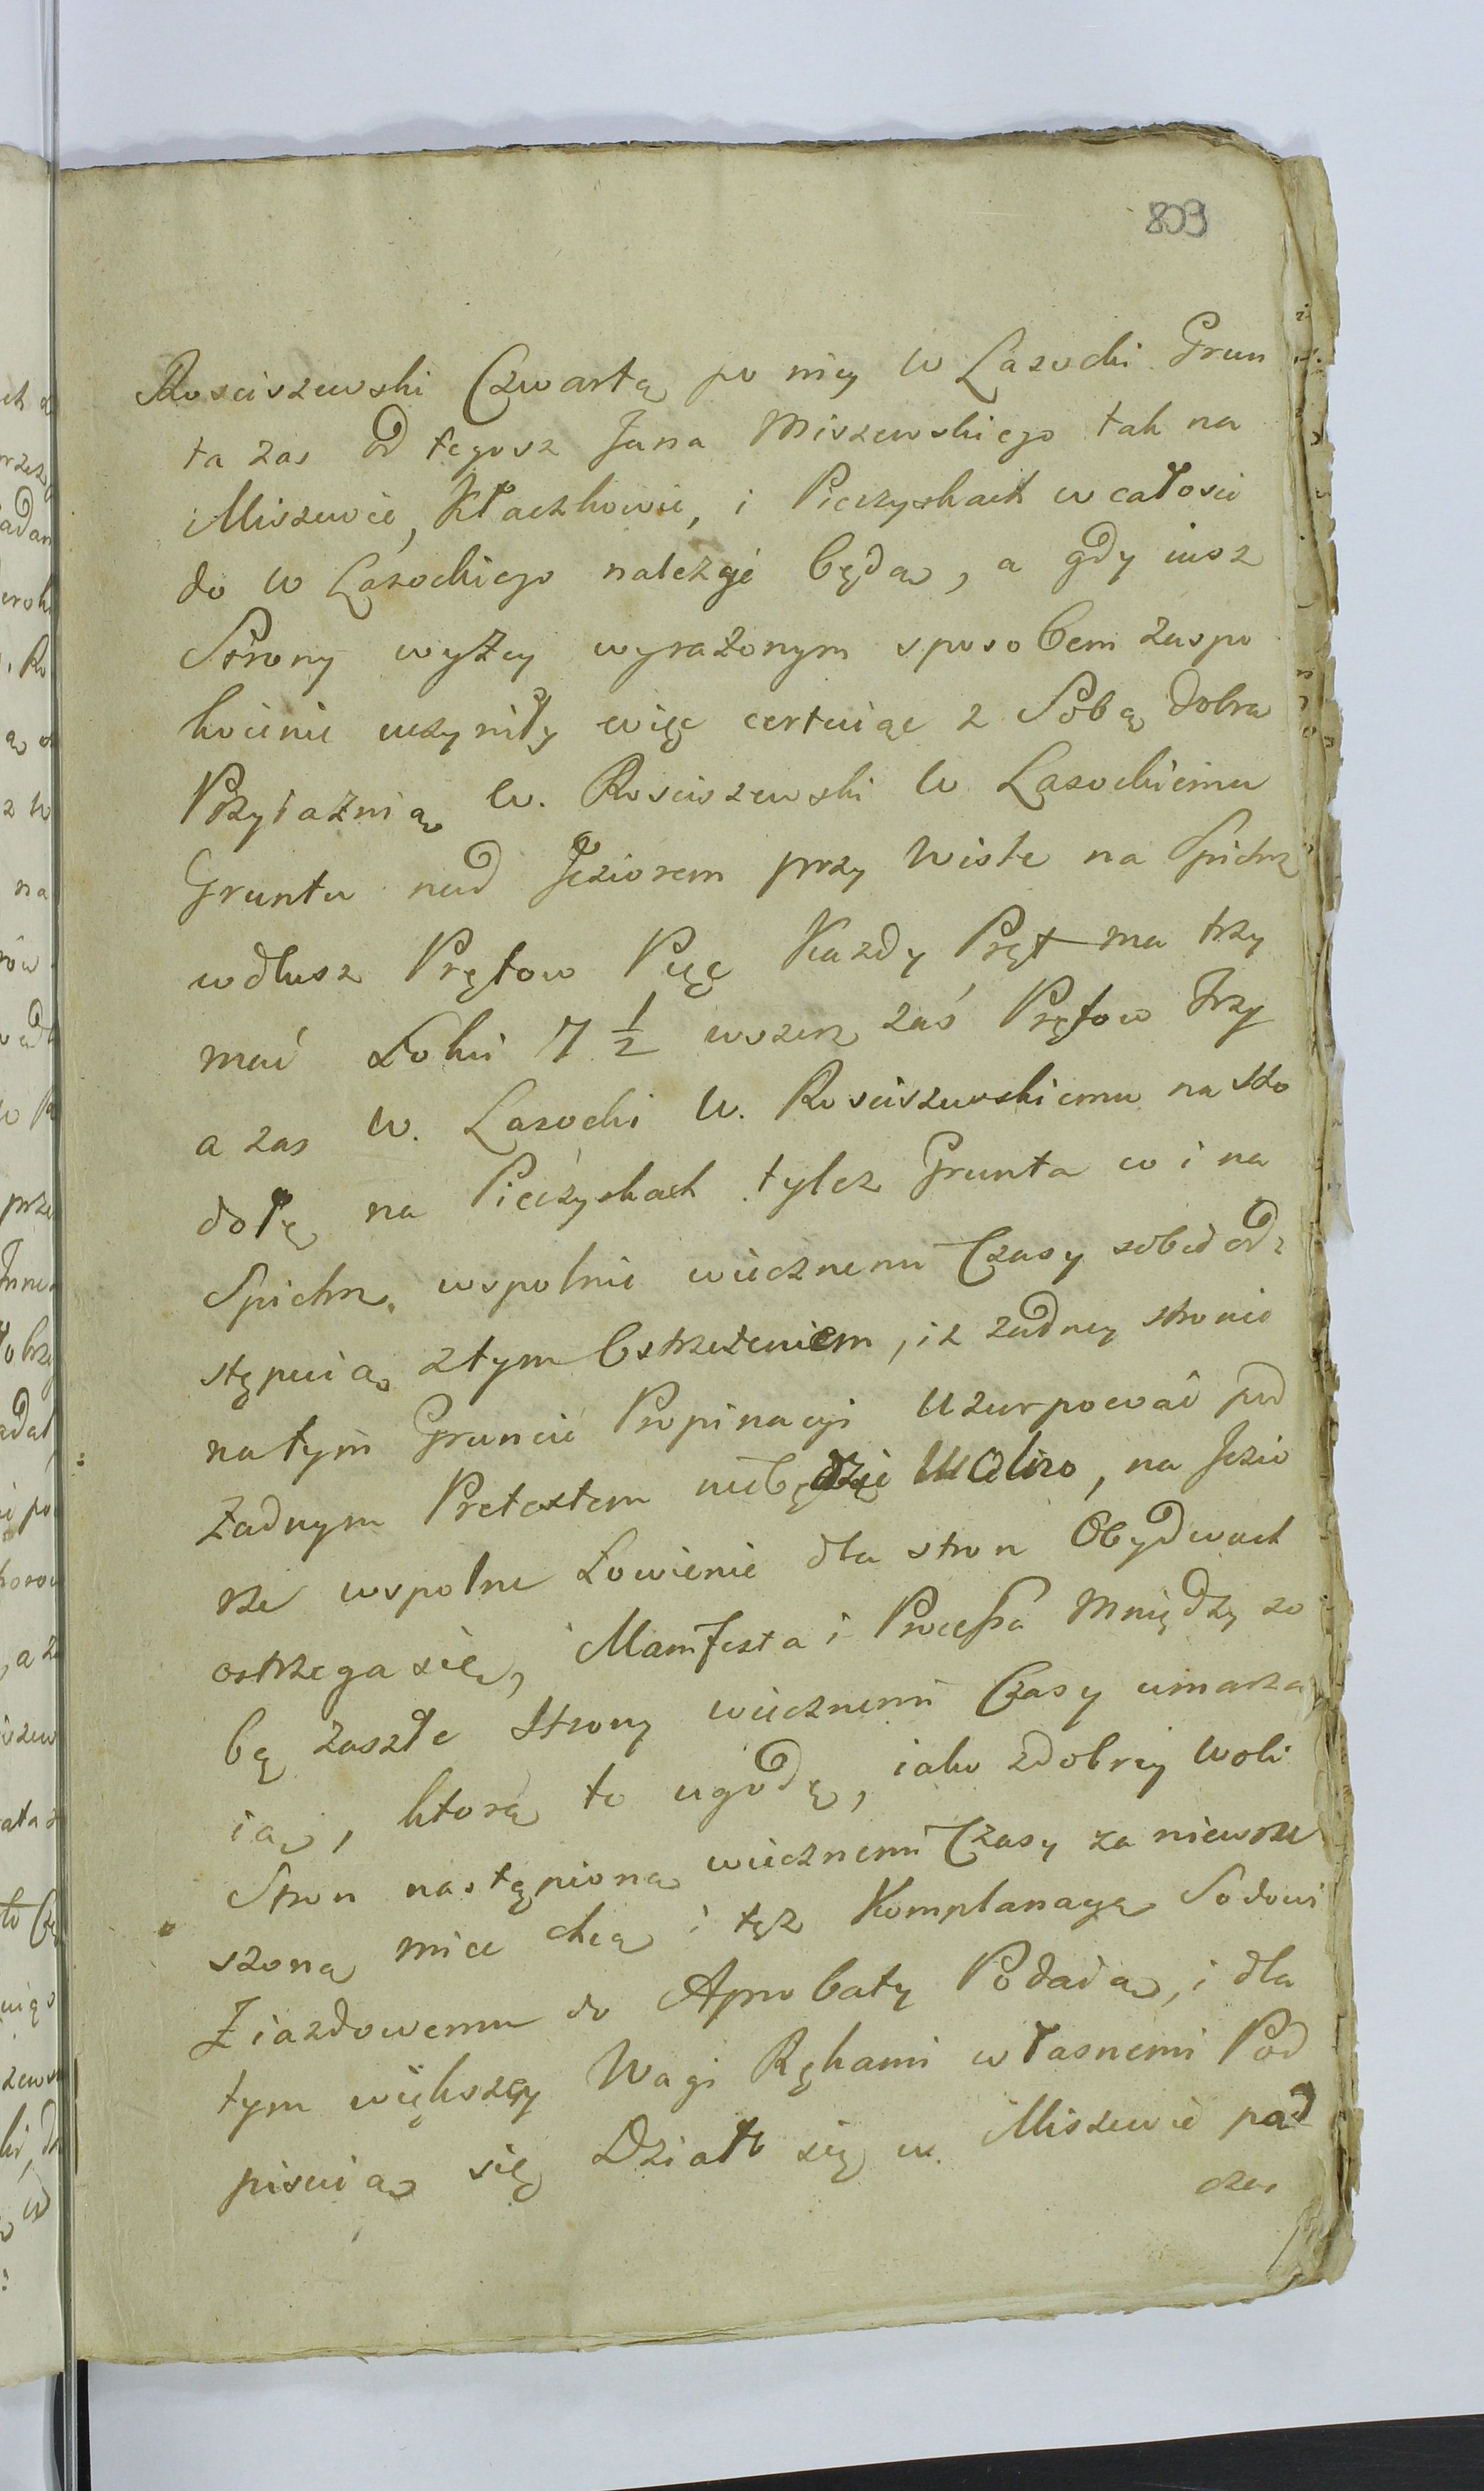 803
Rosciszewski Czwartą po niey W Lasocki Grun
ta zas od tegosz Jana Miszewskiego tak na
Miszewie, Kłaczkowie, i Pieczyskach w całosci
do W Lasockiego nalezyć będą, a gdy iusz
Strony wyżey wyrażonym sposobem zaspo
koienie uczyniły więc certuiąc z Sobą dobrą
Przyiaźnią W. Rosciszewski W Lasockiemu
Gruntu nad Jeziorem przy Wiśle na Spichrz
wdłusz Prętow Pięć Kazdy Pręt ma trzy
mać Łokci 7 1/2 wszerz zaś Prętow Trzy
a zas W. Lasocki W. Rosciszewskiemu na Sto
dołę na Pieczyskach tylez Grunta co i na
Spichrz, wspolnie wiecznemi Czasy sobie od
stępuią z tym Ostrzeżeniem, iz zadney stronie
na tym Gruncie Propinacyi Uzurpować pod
Żadnym Pretextem niebędzie Wolno, na Jezio
rze wspolne Łowienie dla stron Obydwuch
ostrzega się, Manifesta i Processa Między so
bą zaszłe Strony wiecznemi Czasy umarza
ią, ktorą to ugodę, iako z dobrey woli
Stron nastąpioną wiecznemi Czasy za niewzru
szoną miec chcą i tęz Komplanacyą Sądowi
Ziazdowemu do Aprobaty Podaią, i dla
tym większey Wagi Rękami własnemi Pod
pisuią się Działo się w Miszewie pod
czas